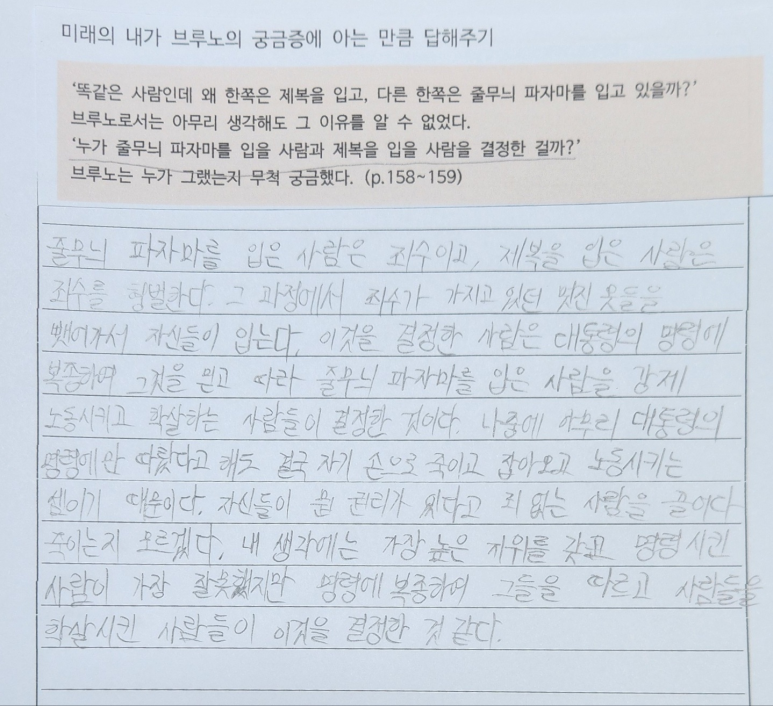 미래의 내가 브루노의 궁금증에 아는 만큼 답해주기
‘똑같은 사람인데 왜 한쪽은 제복을 입고, 다른 한쪽은 줄무늬 파자마를 입고 있을까?’
브루노로서는 아무리 생각해도 그 이유를 알 수 없었다.
‘누가 줄무늬 파자마를 입을 사람과 제복을 입을 사람을 결정한 걸까?’
브루노는 누가 그랬는지 무척 궁금했다. (p.158~159)
줄무늬 파자마를 입은 사람은 죄수이고, 제복을 입은 사람은
죄수를 처벌한다. 그 과정에서 죄수가 가지고 있던 멋진 옷들을
뺏어가서 자신들이 입는다. 이것을 결정한 사람은 대통령의 명령에
복종하여 그것을 믿고 따라 줄무늬 파자마를 입은 사람을 강제
노동시키고 학살하는 사람들이 결정한 것이다. 나중에 아무리 대통령의
명령에만 따랐다고 해도 결국 자기 손으로 죽이고 잡아오고 노동시키는
셈이기 때문이다. 자신들이 뭔 권리가 있다고 죄 없는 사람을 끌어다
죽이는지 모르겠다. 내 생각에는 가장 높은 지위를 갖고 명령시킨
사람이 가장 잘못했지만 명령에 복종하여 그들을 따르고 사람들을
학살시킨 사람들이 이것을 결정한 것 같다.